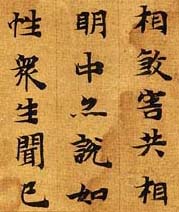 相殺害共相
明中亦說如
性衆生聞已